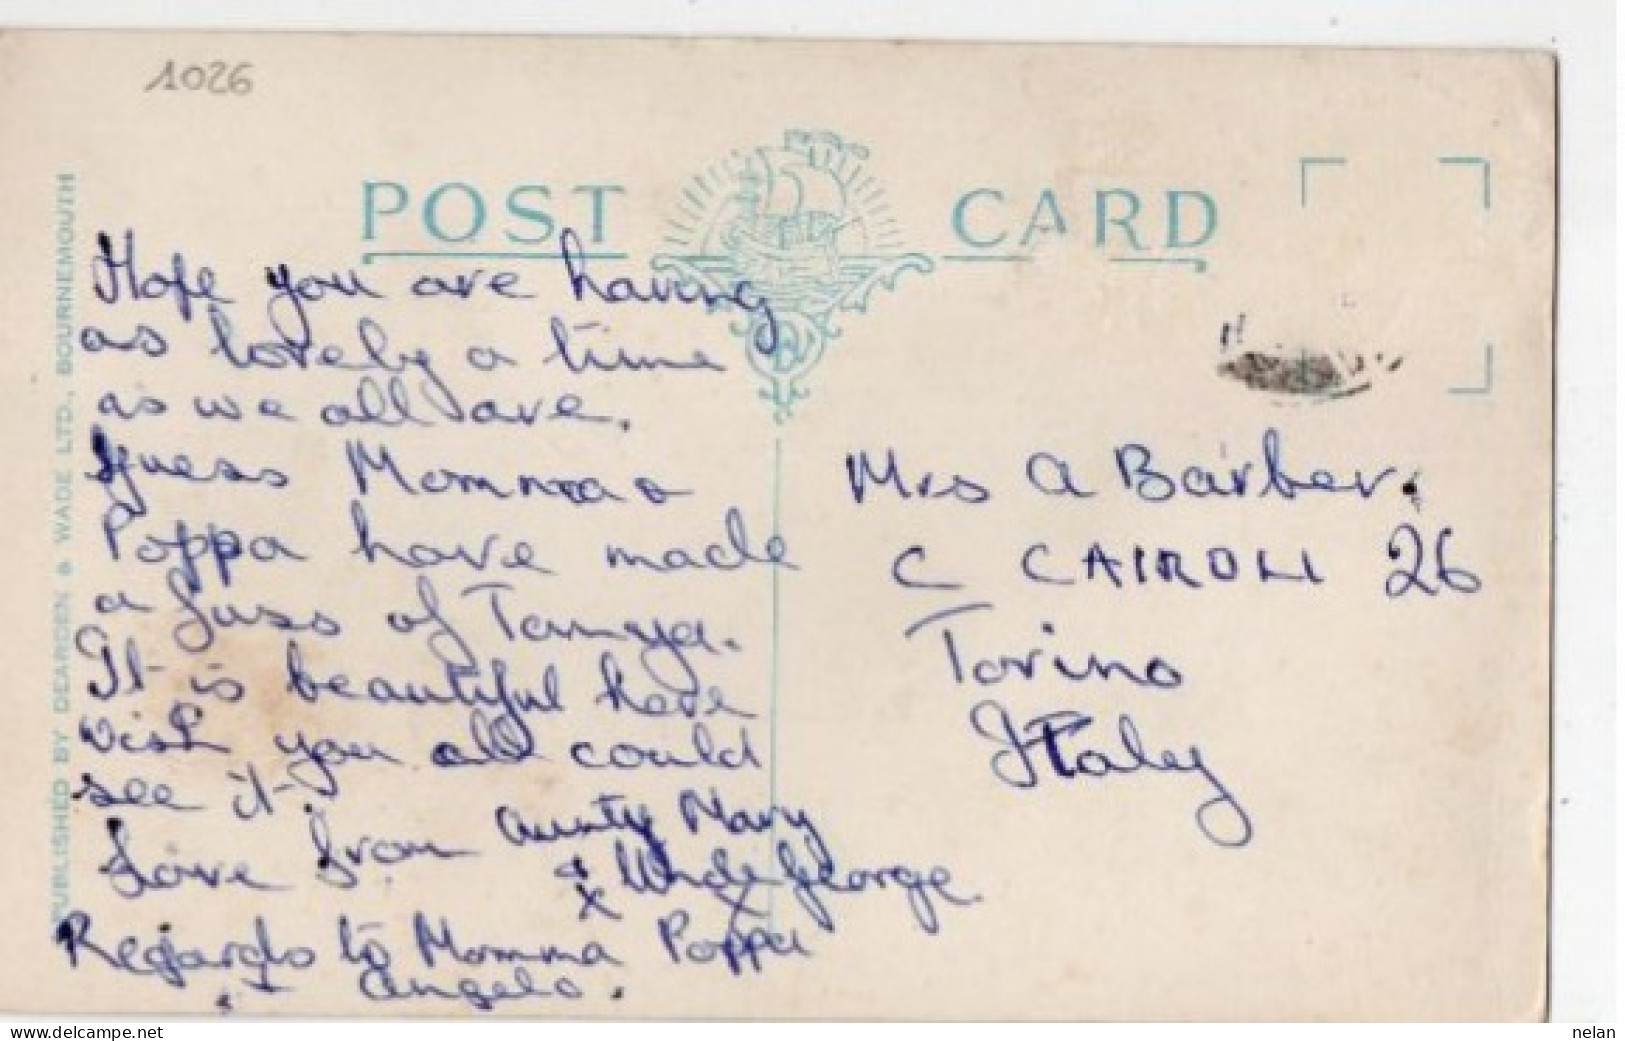 1026
POST CARD
PUBLISHED BY DEARDEN & WADE LTD., BOURNEMOUTH
Hope you are having
as lovely a time
as we all are.
Guess Momma &
Poppa have made
a fuss of Tanya.
It is beautiful here
wish you all could
see it.
Love from Aunty Mary
& Uncle George.
x x
Regards to Momma Poppa
+ Angelo.
Mrs A Barber.
C CAIROLI 26
Torino
Italy
www.delcampe.net
nelan